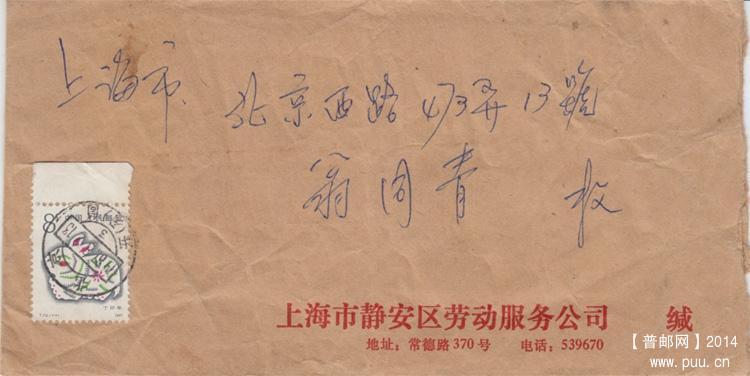 上海市
北京西路473弄13號
翁同青 收
8
丁卯年
上海市静安区劳动服务公司 缄
地址：常德路370号 电话：539670
【普邮网】2014
www.puu.cn